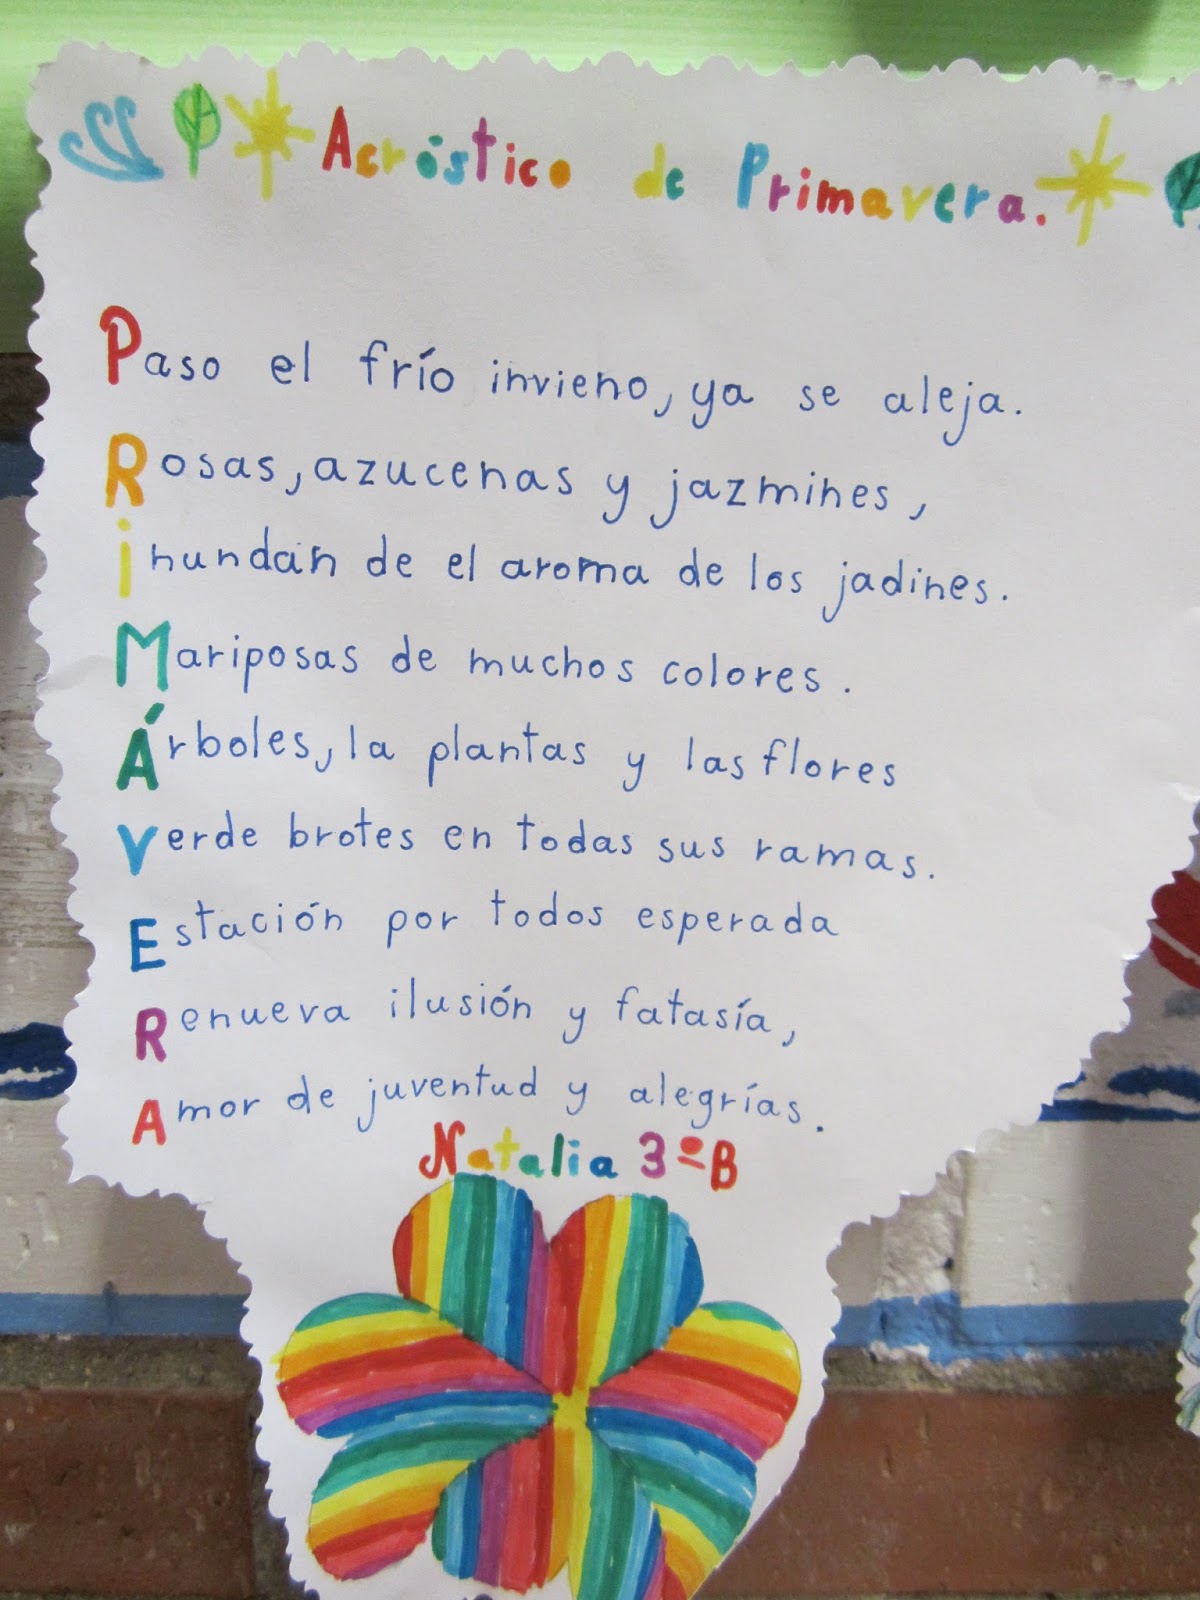 Acróstico de Primavera.
Paso el frío invieno, ya se aleja.
Rosas, azucenas y jazmines,
inundan de el aroma de los jadines.
Mariposas de muchos colores.
Árboles, la plantas y las flores
Verde brotes en todas sus ramas.
Estación por todos esperada
Renueva ilusión y fatasía,
Amor de juventud y alegrías.
Natalia 3ºB